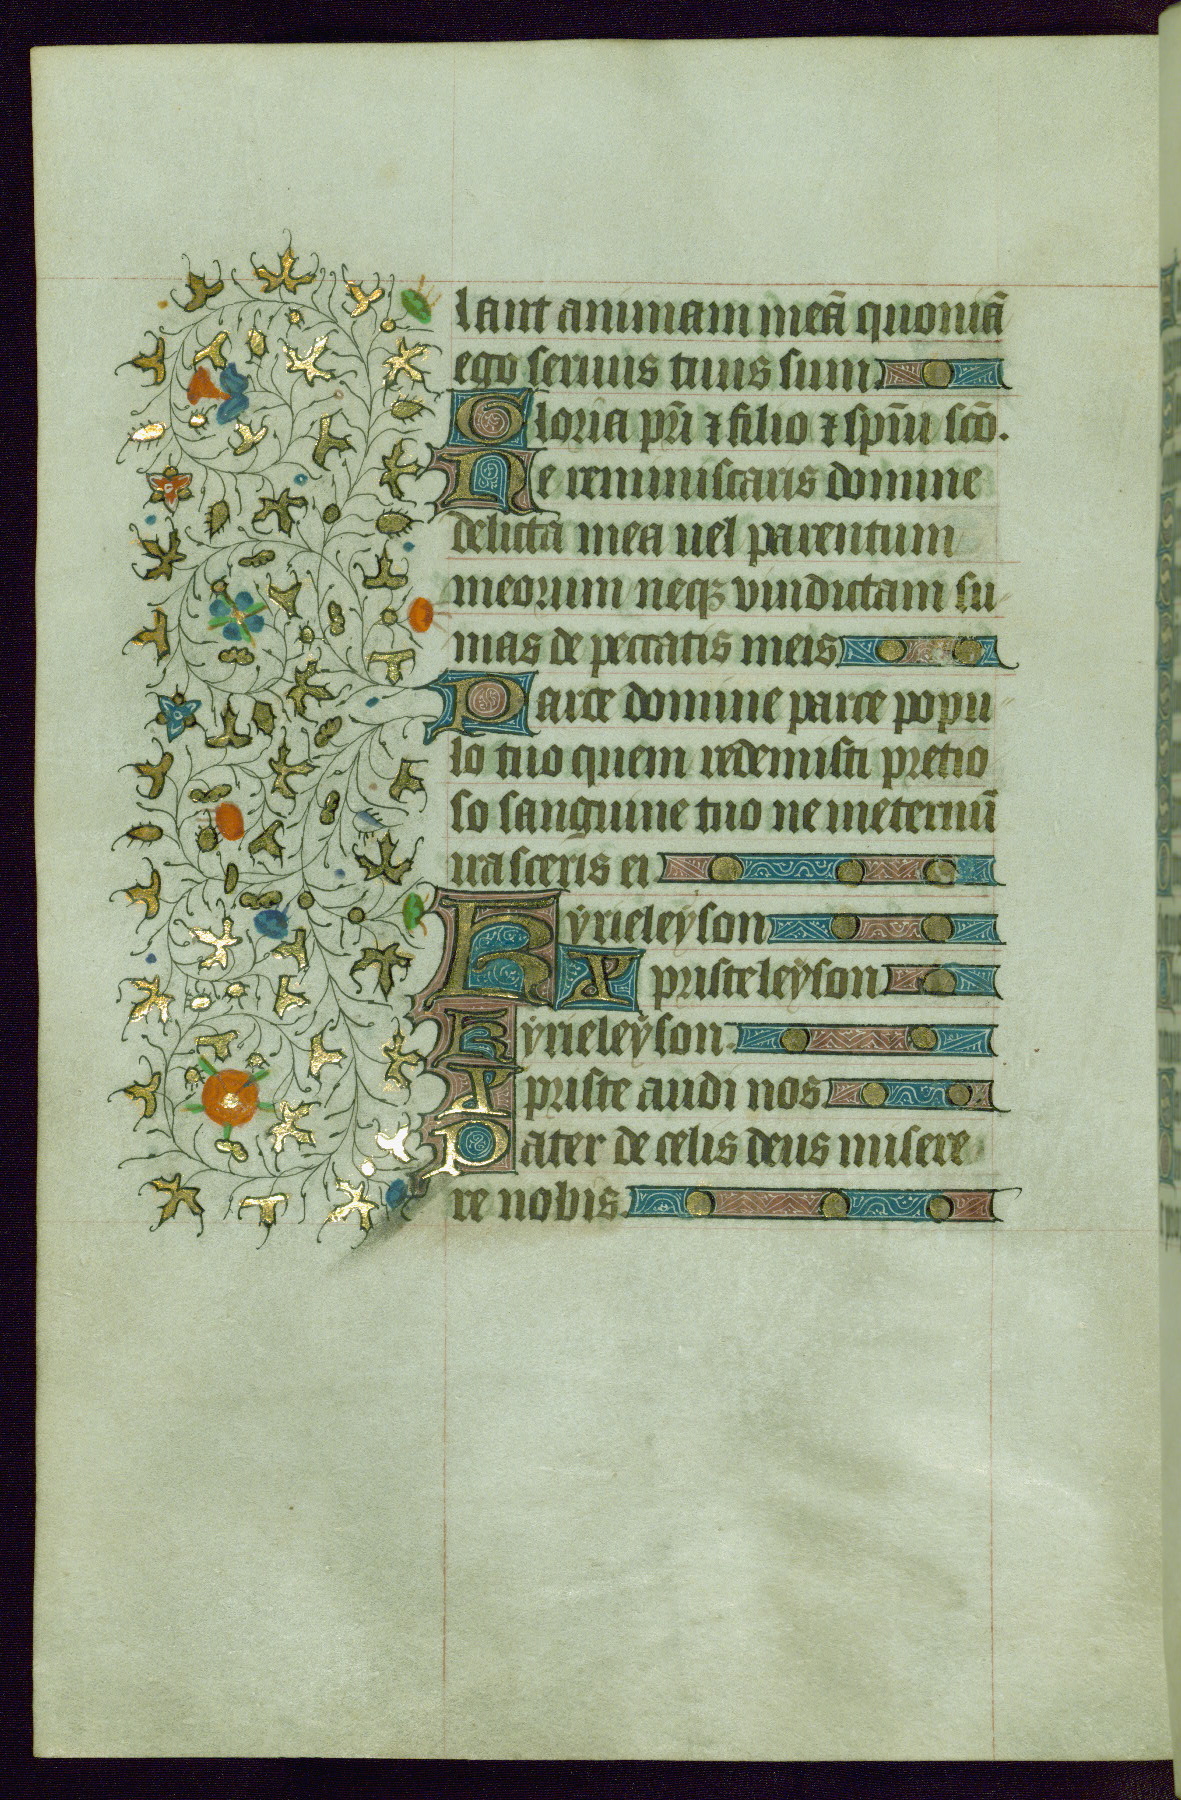 lant animam meã quoniã
ego seruus tuus sum
Gloria pr̃i ⁊ filio ⁊ sp̃iu sc̃o.
Ne reminiscaris domine
delicta mea uel parentum
meorum neqꝫ vindictam su
mas de peccatis meis
Parce domine parce popu
lo tuo quem redemisti pretio
so sanguine tuo ne ineternũ
irasceris ei
Kÿrieleÿson
Xpristeleÿson
Kÿrieleÿson
Xpriste audi nos
Pater de celis deus misere
re nobis